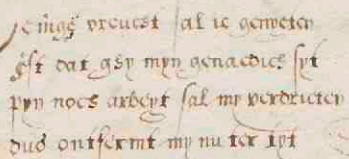 vreucst sal ic genyeten
Est dat ghy myn genaedich syt
pyn noch arbeyt sal my verdrieten
dus ontfermt my nu ter tyt